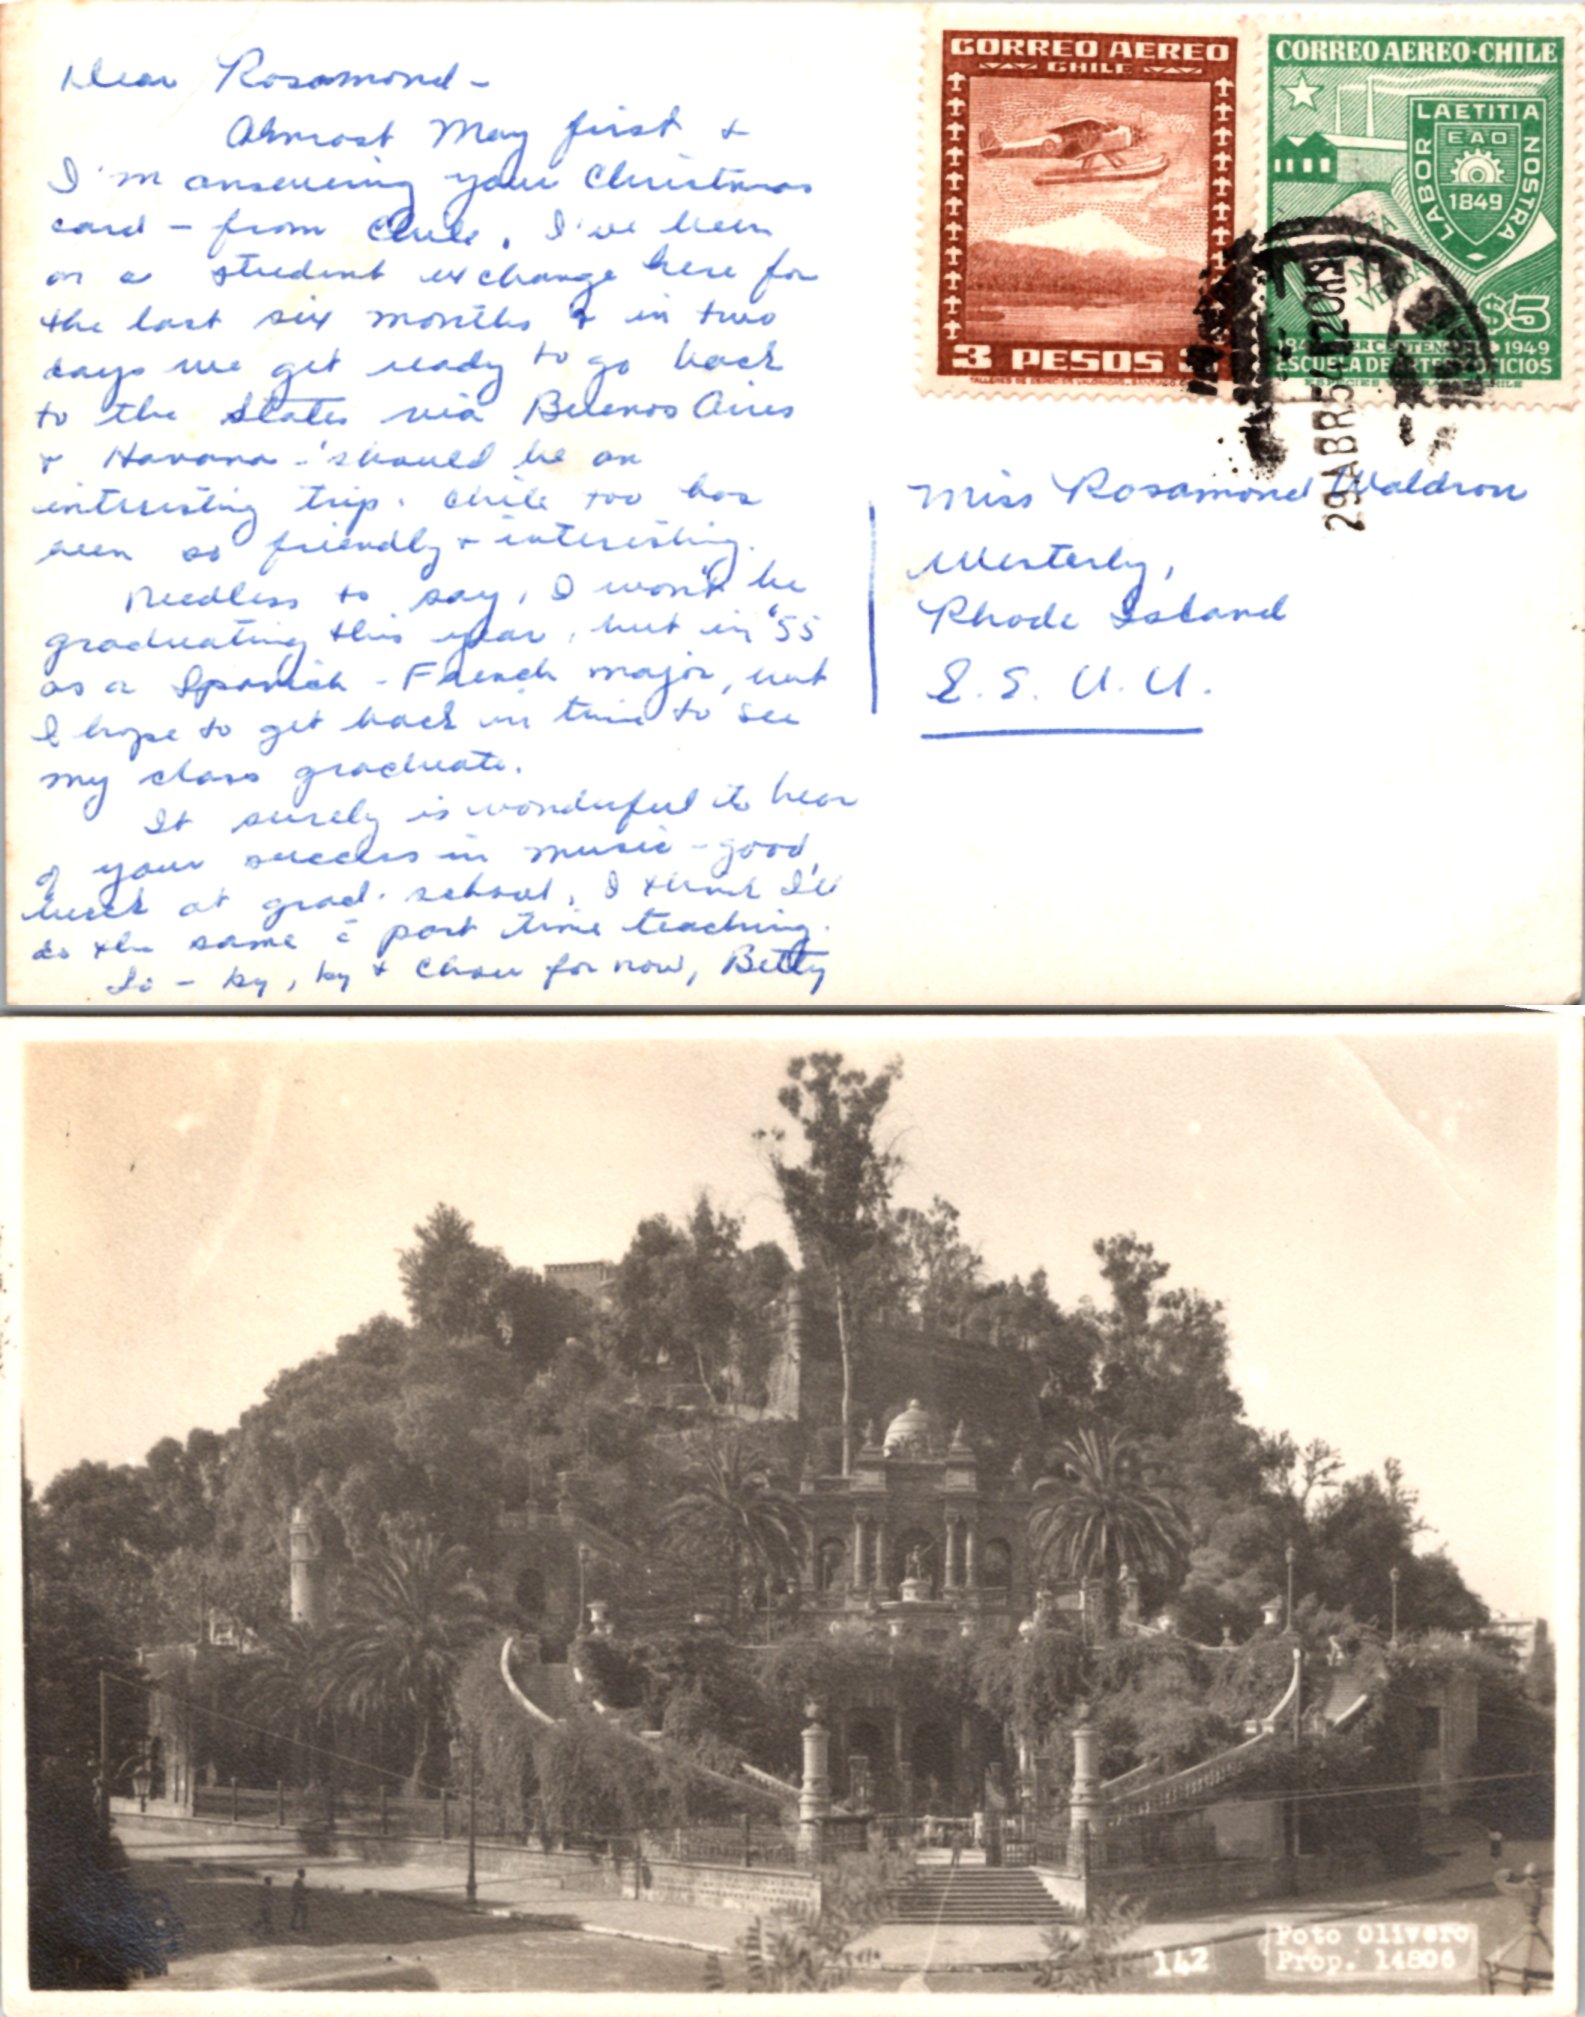 Dear Rosamond -
Almost May first +
I'm answering your Christmas
card - from Chile. I've been
on a student exchange here for
the last six months & in two
days we get ready to go back
to the States via Buenos Aires
+ Havana - should be an
interesting trip. Chile too has
been so friendly + interesting.
Needless to say, I won't be
graduating this year, but in '55
as a Spanish - French major, but
I hope to get back in time to see
my class graduate.
It surely is wonderful to hear
of your success in music - good
luck at grad. school, I think I'll
do the same c̄ part time teaching.
So - by, by + chau for now, Betty
CORREO AEREO
CHILE
3 PESOS 3
TALLERES DE ESPECIES VALORADAS - SANTIAGO
CORREO AEREO·CHILE
LABOR LAETITIA NOSTRA
EAO
1849
$5
1849
ESCUELA DE ARTES OFICIOS
29 ABR 54 1200
Miss Rosamond Waldron
Westerly,
Rhode Island
E. E. U. U.
142
Foto Olivero
Prop. 14806